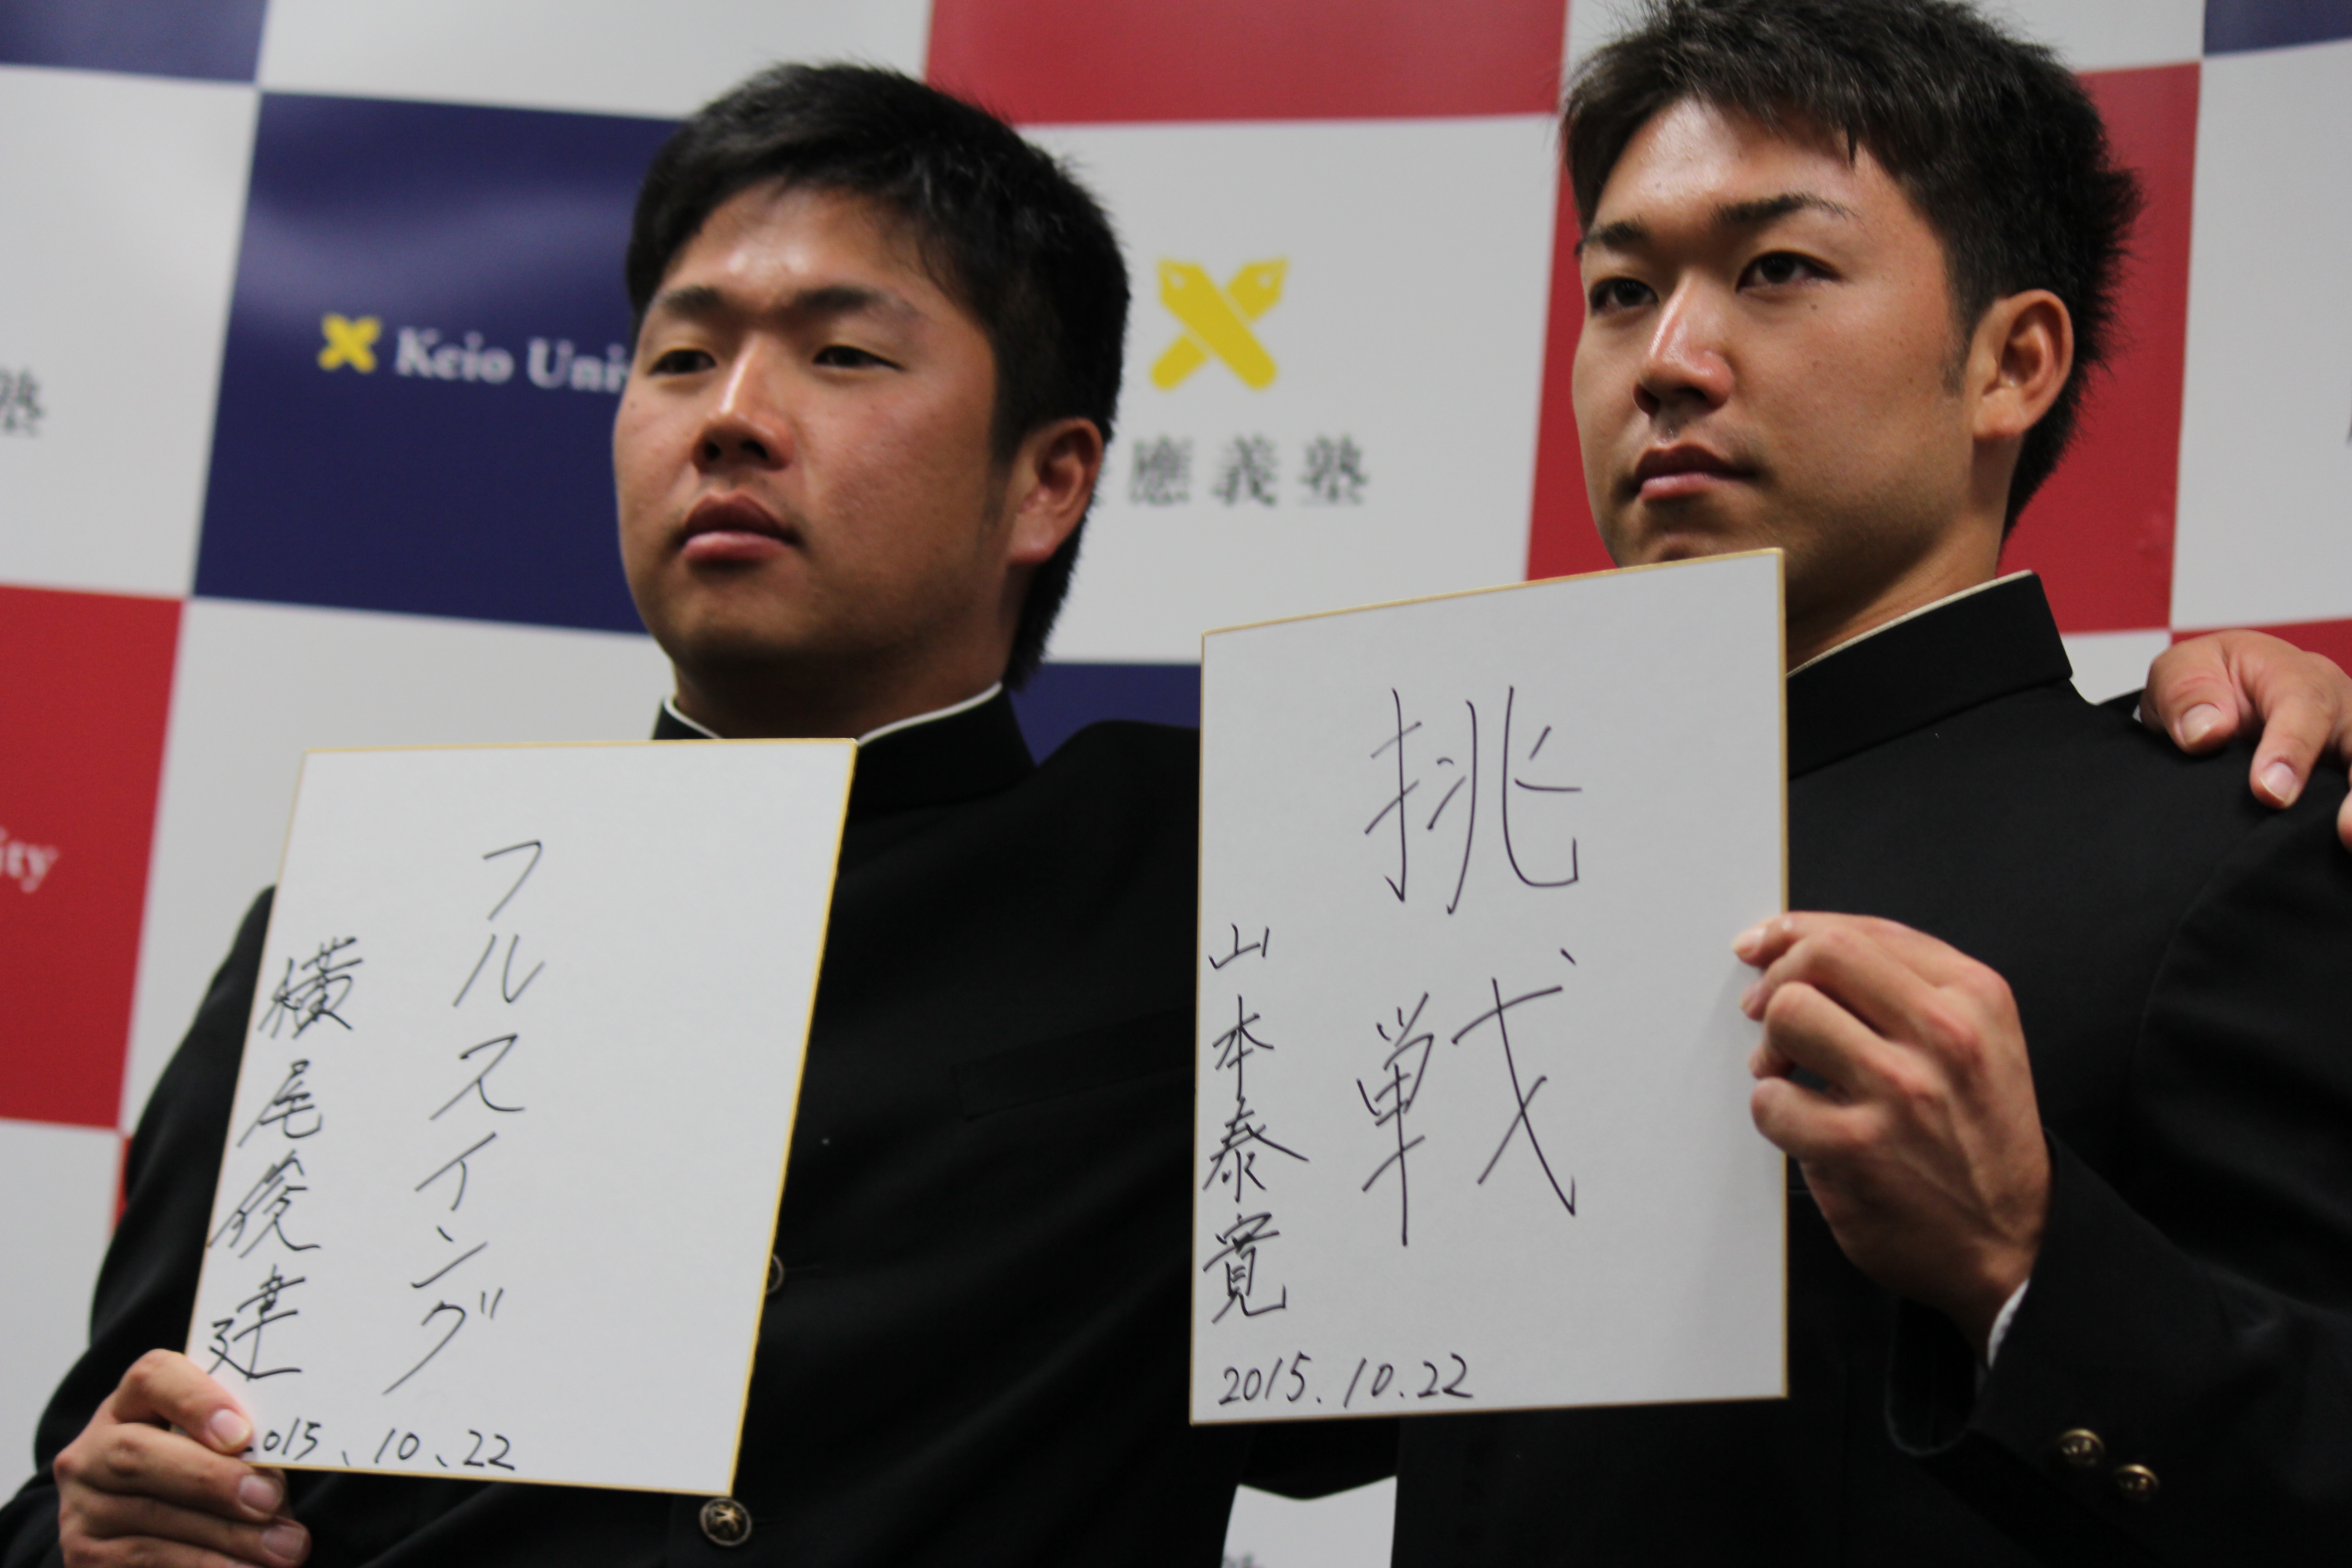 塾
Keio Uni
應義塾
ity
フルスイング
横尾俊建
2015、10、22
挑戦
山本泰寛
2015.10.22